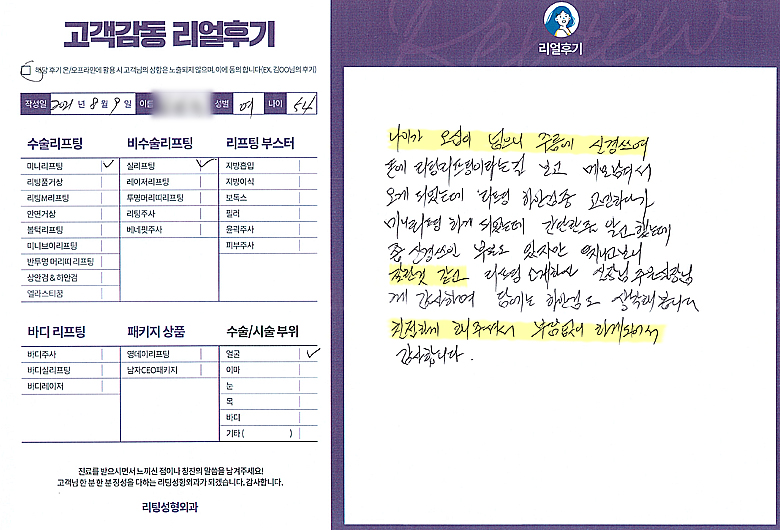 고객감동 리얼후기
해당 후기 온/오프라인에 활용 시 고객님의 성함은 노출되지 않으며, 이에 동의합니다(EX. 김OO님의 후기)
작성일 2021 년 8 월 9 일 이름 성별 여 나이 54
수술리프팅
미니리프팅
리팅풀거상
리팅M리프팅
안면거상
볼턱리프팅
미니브이리프팅
반투명 머리띠 리프팅
상안검 & 하안검
엘라스티꿈
비수술리프팅
실리프팅
레이저리프팅
투명머리띠리프팅
리팅주사
베네핏주사
리프팅 부스터
지방흡입
지방이식
보톡스
필러
윤곽주사
피부주사
바디 리프팅
바디주사
바디실리프팅
바디레이저
패키지 상품
영데이리프팅
남자CEO패키지
수술/시술 부위
얼굴
이마
눈
목
바디
기타( )
진료를 받으시면서 느끼신 점이나 칭찬의 말씀을 남겨주세요!
고객님 한 분 한 분 정성을 다하는 리팅성형외과가 되겠습니다. 감사합니다.
리팅성형외과
Review
리얼후기
나이가 오십이 넘으니 주름에 신경쓰여
보고 메모남겨서
오게 되었는데 리팅 하안검중 고민하다가
미니리팅 하게 되었는데 간단한줄 알고 했는데
좀 신경쓰인 부분도 있지만
잘한것 같고 실장님
께 감사하며 담에는 하안검도 생각해봅니다
친절하게 해주셔서 부담없이 하게되어서
감사합니다.